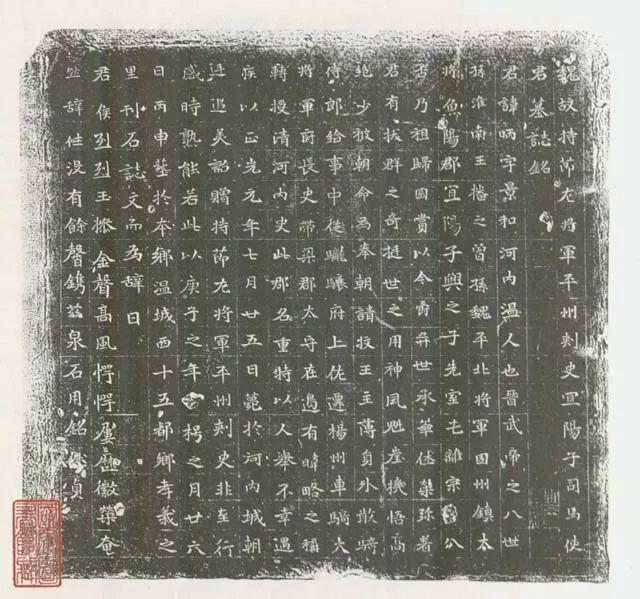 魏故持節左將軍平州刾史宜陽子司馬使
君墓誌銘
君諱昞字景和河內溫人也晉武帝之八世
孫淮南王播之曾孫魏平北將軍固州鎮大
將魚陽郡宜陽子興之子先室乇離宗胄公
否乃祖歸國賞以今爵弈世承華休榮弥著
君有拔群之奇挺世之用神風魁崖機悟高
絕少被朝命為奉朝請牧王主薄員外散騎
侍郎給事中從驤驤府上佐遷楊州車騎大
將軍府長史帶梁郡太守在邊有暐略之稱
轉授清河內史此郡名重特以人舉不幸遇
疾以正光元年七月廿五日薨於河內城朝
廷追美詔贈持節左將軍平州刾史非至行
感時孰能若此以庚子之年玄枵之月廿六
日丙申葬於本鄉溫城西十五都鄉孝義之
里刊石誌文而為辭曰
君侯烈烈玉操金聲高風愕愕屢歷徽榮奄
辭性没有餘聲鐫茲泉石用銘貞